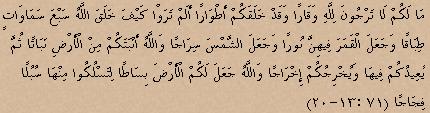 مَا لَكُمْ لَا تَرْجُونَ لِلَّهِ وَقَارًا وَقَدْ خَلَقَكُمْ أَطْوَارًا أَلَمْ تَرَوْا كَيْفَ خَلَقَ اللَّهُ سَبْعَ سَمَاوَاتٍ
طِبَاقًا وَجَعَلَ الْقَمَرَ فِيهِنَّ نُورًا وَجَعَلَ الشَّمْسَ سِرَاجًا وَاللَّهُ أَنْبَتَكُمْ مِنَ الْأَرْضِ نَبَاتًا ثُمَّ
يُعِيدُكُمْ فِيهَا وَيُخْرِجُكُمْ إِخْرَاجًا وَاللَّهُ جَعَلَ لَكُمُ الْأَرْضَ بِسَاطًا لِتَسْلُكُوا مِنْهَا سُبُلًا
فِجَاجًا (٧١ :١٣-٢٠)